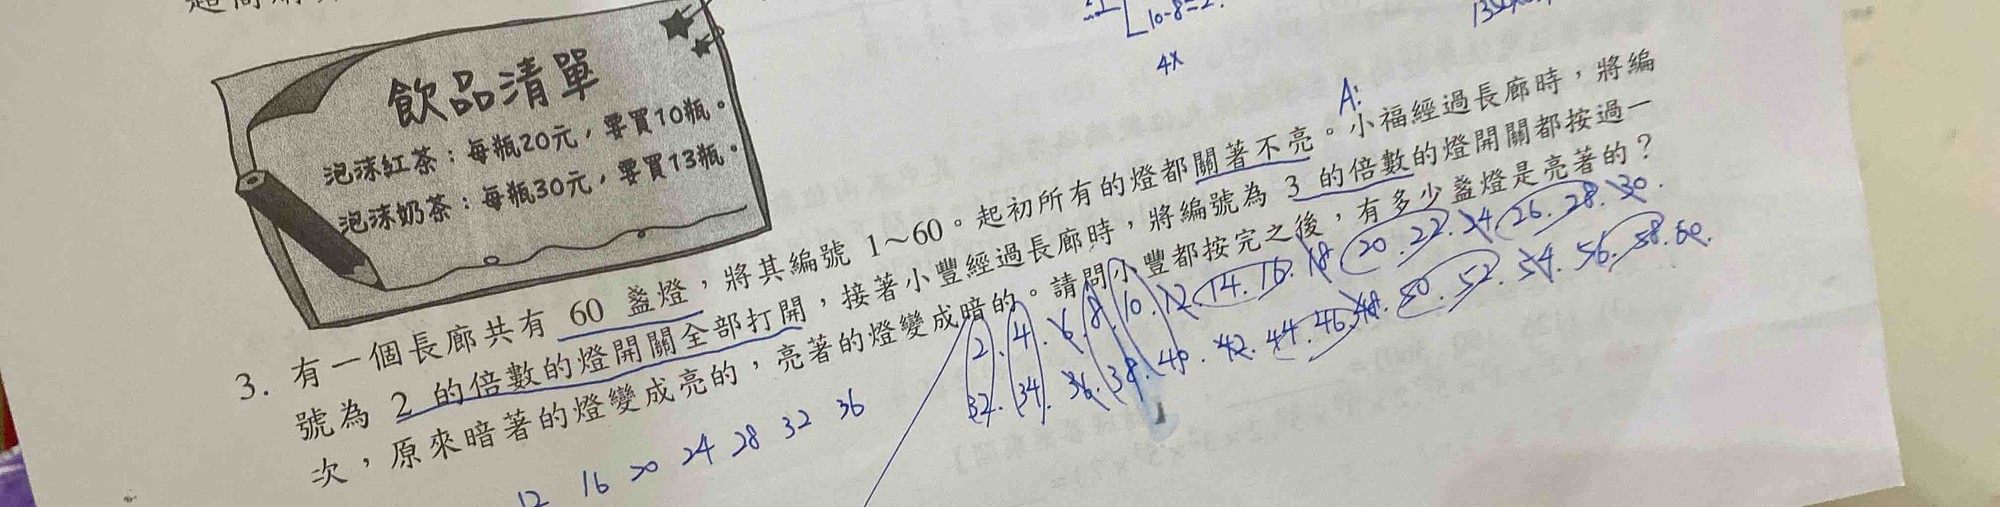 飲品清單
泡沫紅茶：每瓶20元，要買10瓶。
泡沫奶茶：每瓶30元，要買13瓶。
10-8=2.
4X
A:
3. 有一個長廊共有 60 盞燈，將其編號 1～60。起初所有的燈都關著不亮。小福經過長廊時，將編
號為 2 的倍數的燈開關全部打開，接著小豐經過長廊時，將編號為 3 的倍數的燈開關都按過一
次，原來暗著的燈變成亮的，亮著的燈變成暗的。請問小豐都按完之後，有多少盞燈是亮著的？
2. 4. 6. 8. 10. 12. 14. 16. 18 20. 22. 24. 26. 28. 30.
32. 34. 36. 38. 40. 42. 44. 46. 48. 50. 52. 54. 56. 58. 60.
12 16 20 24 28 32 36